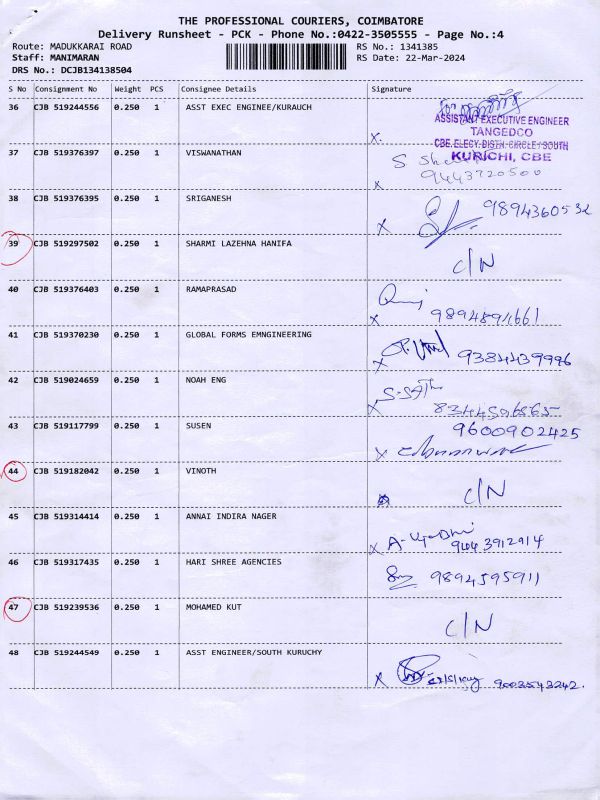 THE PROFESSIONAL COURIERS, COIMBATORE
Delivery Runsheet - PCK - Phone No.:0422-3505555 - Page No.:4
Route: MADUKKARAI ROAD
RS No.: 1341385
Staff: MANIMARAN
RS Date: 22-Mar-2024
DRS No.: DCJB134138504
S No Consignment No Weight PCS Consignee Details Signature
36 CJB 519244556 0.250 1 ASST EXEC ENGINEE/KURAUCH
ASSISTANT EXECUTIVE ENGINEER
TANGEDCO
CBE.ELECY.DISTN.CIRCLE / SOUTH
KURICHI, CBE
X.
37 CJB 519376397 0.250 1 VISWANATHAN
S
9443720500
X
38 CJB 519376395 0.250 1 SRIGANESH
9894360532
X
39 CJB 519297502 0.250 1 SHARMI LAZEHNA HANIFA
C/N
40 CJB 519376403 0.250 1 RAMAPRASAD
X 9894891661
41 CJB 519370230 0.250 1 GLOBAL FORMS EMNGINEERING
X 9384439996
42 CJB 519024659 0.250 1 NOAH ENG
X 8344596565
43 CJB 519117799 0.250 1 SUSEN
9600902425
X
44 CJB 519182042 0.250 1 VINOTH
C/N
45 CJB 519314414 0.250 1 ANNAI INDIRA NAGER
X
46 CJB 519317435 0.250 1 HARI SHREE AGENCIES
9894595911
47 CJB 519239536 0.250 1 MOHAMED KUT
C/N
48 CJB 519244549 0.250 1 ASST ENGINEER/SOUTH KURUCHY
X 9003543242.